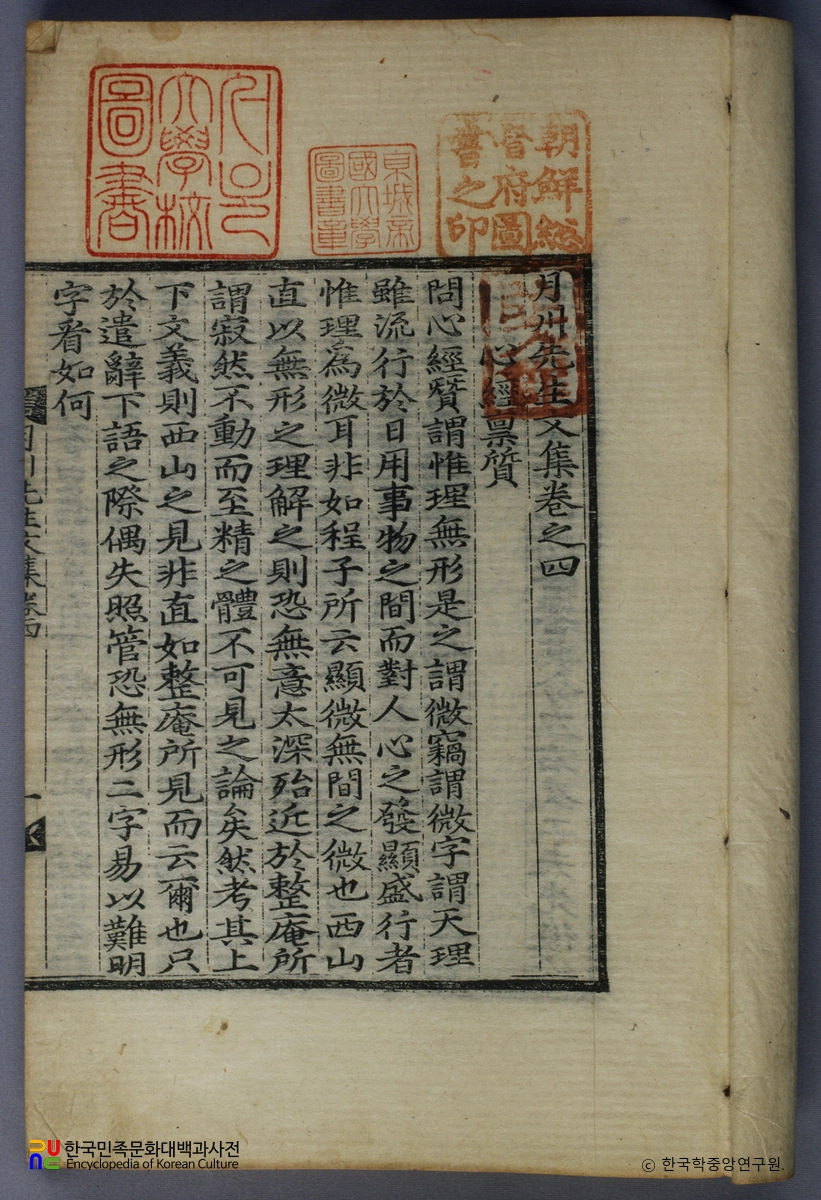 朝鮮總
督府圖
書之印
京城帝
國大學
圖書章
서울
大學校
圖書
月川先生文集卷之四
心經稟質
問心經質謂惟理無形是之謂微竊謂微字謂天理
雖流行於日用事物之間而對人心之發顯盛行者
惟理為微耳非如程子所云顯微無間之微也西山
直以無形之理解之則恐無意太深殆近於整庵所
謂寂然不動而至精之體不可見之論矣然考其上
下文義則西山之見非直如整庵所見而云爾也只
於遣辭下語之際偶失照管恐無形二字易以難明
字看如何
月川先生文集卷四
一
한국민족문화대백과사전
Encyclopedia of Korean Culture
© 한국학중앙연구원.